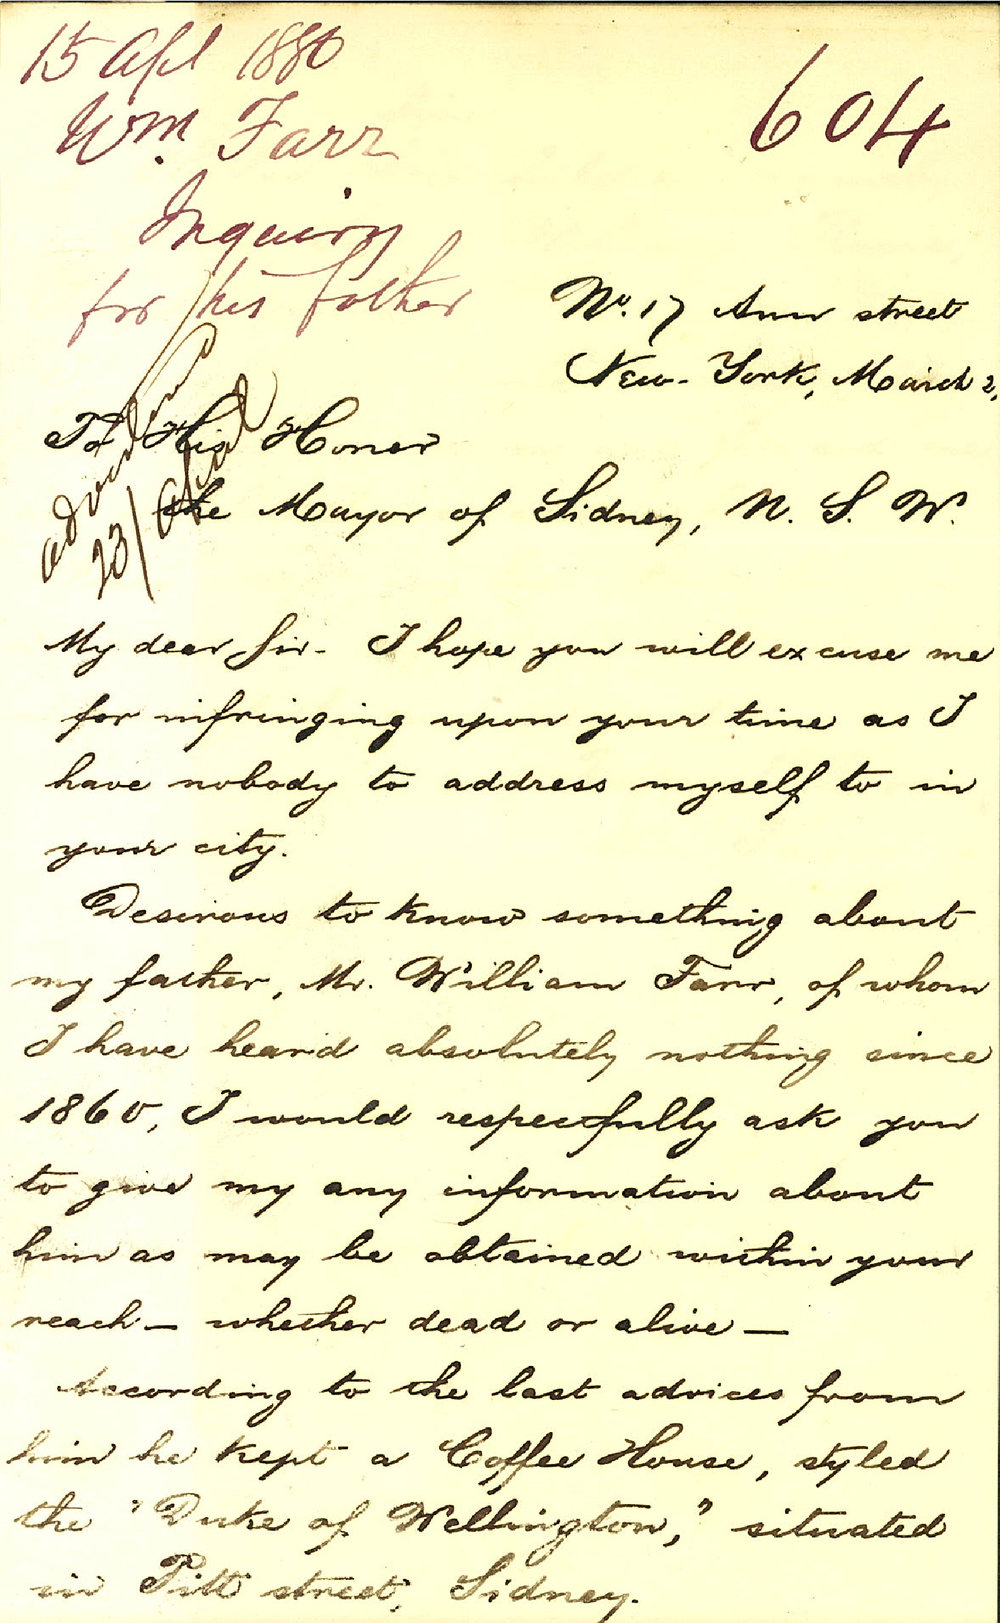 15 Apl 1880
604
Wm. Farr
Inquiry
for his father
No. 17 Ann street
New-York, March 2,
To His Honor
the Mayor of Sidney, N. S. W.
23/
My dear Sir - I hope you will excuse me
for infringing upon your time as I
have nobody to address myself to in
your city.
Desirous to know something about
my father, Mr. William Farr, of whom
I have heard absolutely nothing since
1860, I would respectfully ask you
to give my any information about
him as may be obtained within your
reach — whether dead or alive —
According to the last advices from
him he kept a Coffee House, styled
the "Duke of Wellington," situated
in Pitt street, Sidney.